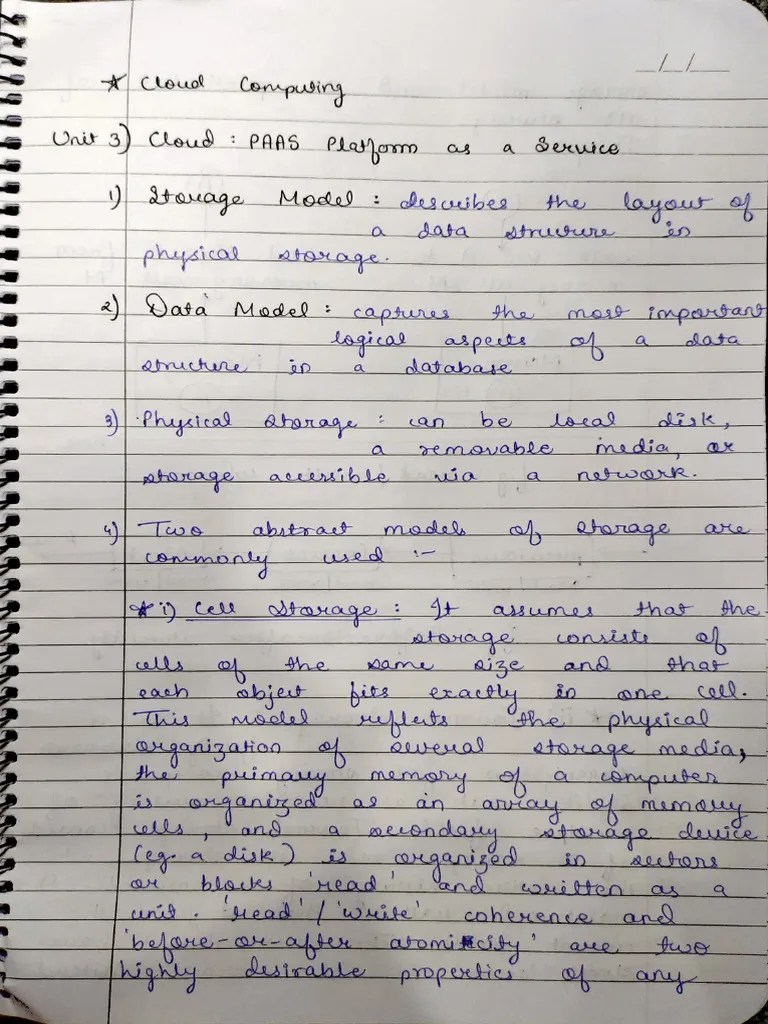 __/__/____
* Cloud Computing
Unit 3) Cloud : PAAS Platform as a Service
1) Storage Model : describes the layout of
a data structure in
physical storage.
2) Data Model : captures the most important
logical aspects of a data
structure in a database
3) Physical storage : can be local disk,
a removable media, or
storage accessible via a network.
4) Two abstract models of storage are
commonly used :-
* i) Cell Storage : It assumes that the
storage consists of
cells of the same size and that
each object fits exactly in one cell.
This model reflects the physical
organization of several storage media,
the primary memory of a computer
is organized as an array of memory
cells, and a secondary storage device
(eg. a disk) is organized in sectors
or blocks 'read' and written as a
unit. 'read' / 'write' coherence and
'before-or-after atomicity' are two
highly desirable properties of any